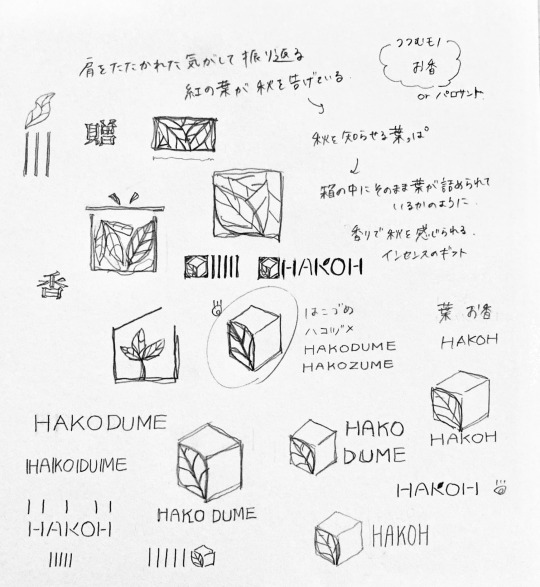 肩をたたかれた気がして振り返る
紅の葉が秋を告げている。
つつむモノ
お香
or パロサント
贈
秋を知らせる葉っぱ
箱の中にそのまま葉が詰められて
いるかのように
香りで秋を感じられる
インセンスのギフト
HAKOH
香
はこづめ
ハコヅメ
HAKODUME
HAKOZUME
葉 お香
HAKOH
HAKOH
HAKODUME
HAKODUME
HAKO DUME
HAKO
DUME
HAKOH
HAKOH
HAKOH